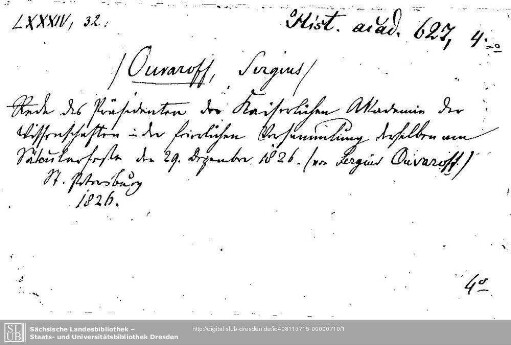 LXXXIV, 32.
Hist. acad. 627, 4.
/Ouvaroff, Sergius/
Rede des Präsidenten der Kaiserlichen Akademie der
Wissenschaften in der feierlichen Versammlung derselben am
Säcularfeste den 29. Dezember 1826. (von Sergius Ouvaroff)
St. Petersburg
1826.
4°
SLUB
Sächsische Landesbibliothek –
Staats- und Universitätsbibliothek Dresden